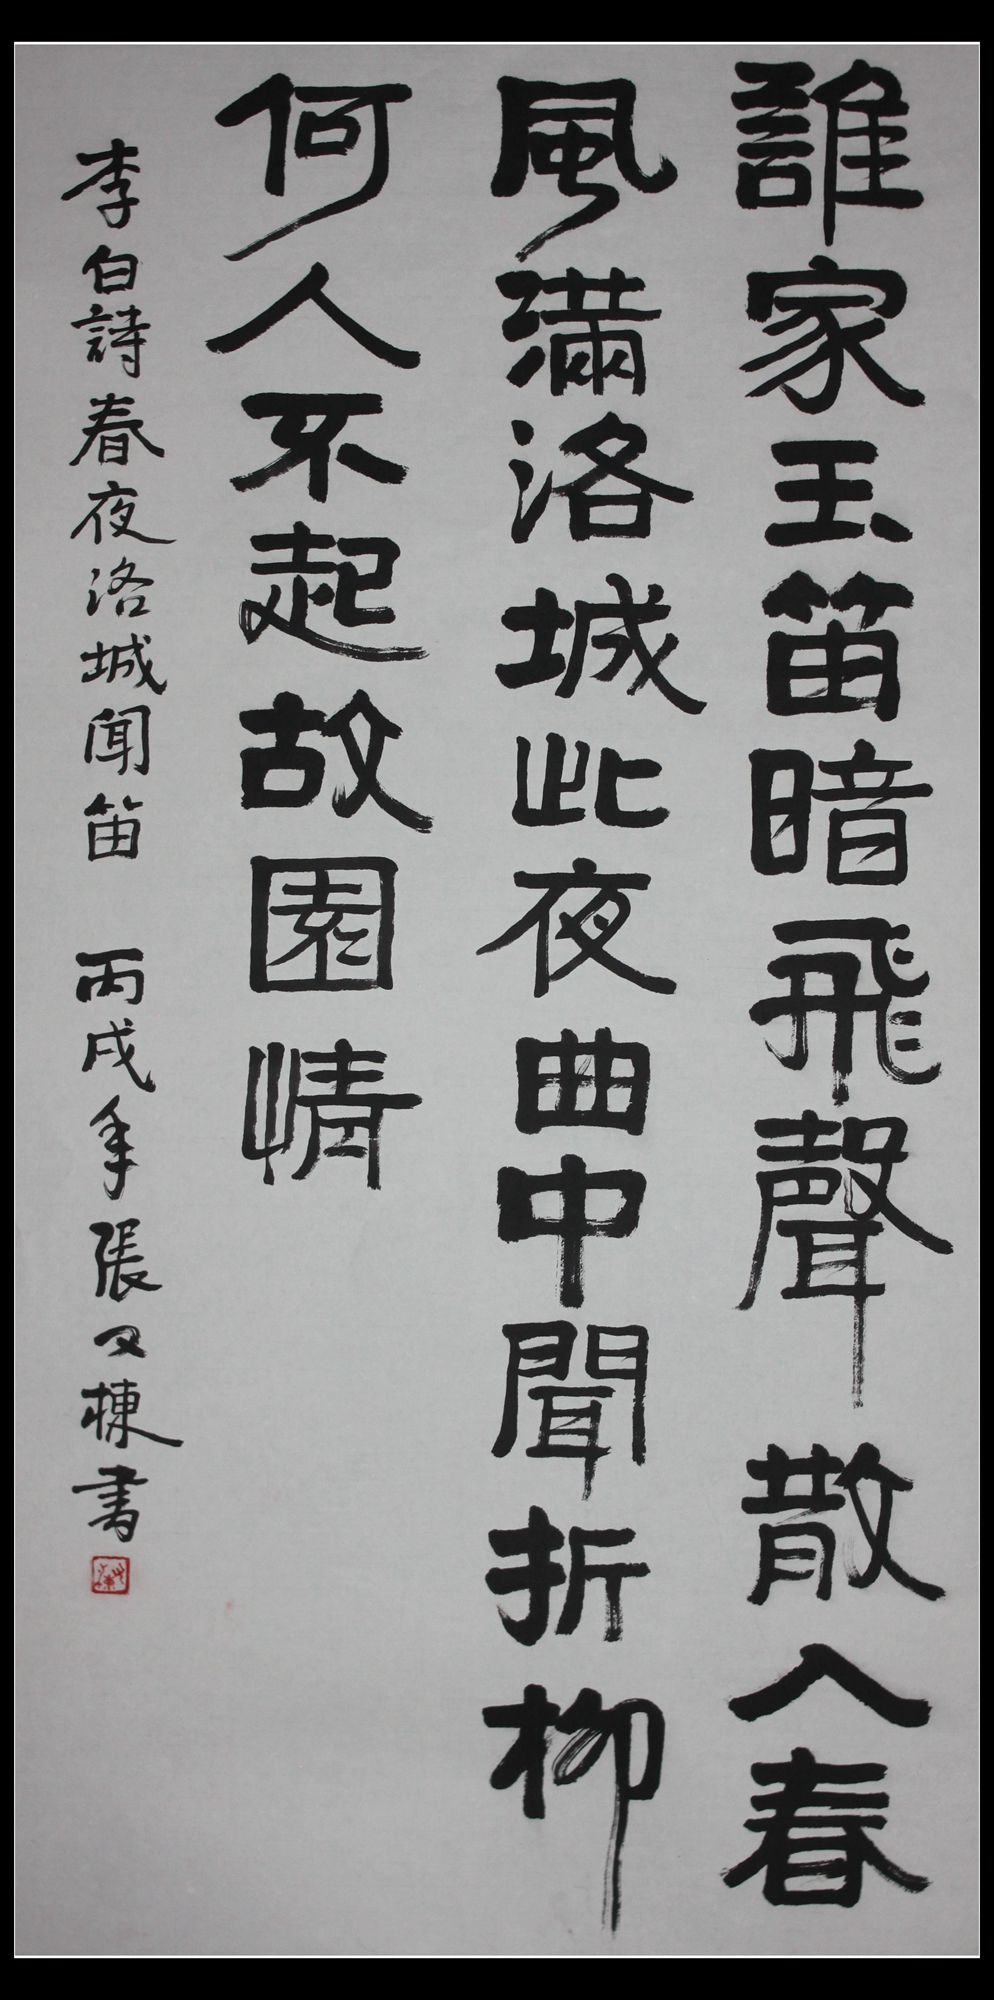 誰家玉笛暗飛聲散入春
風滿洛城此夜曲中聞折柳
何人不起故園情
李白詩春夜洛城闻笛 丙戌年張又棟书